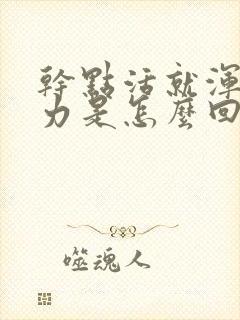 幹點活就渾
力是怎麼回
噬魂人